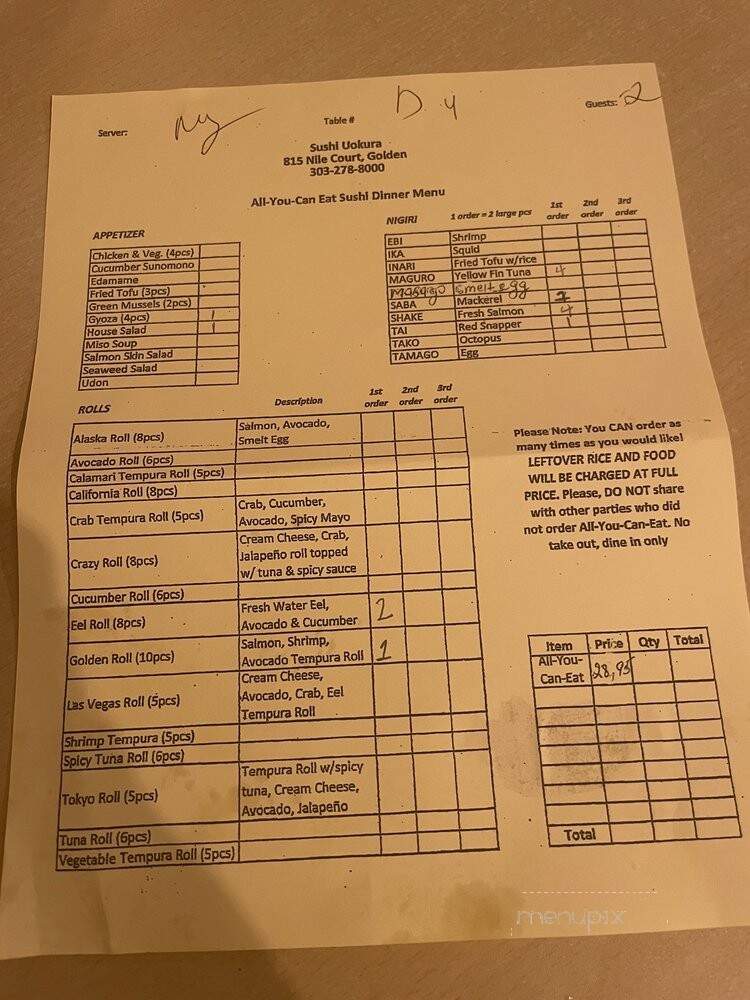 Server: Ny
Table # D 4
Guests: 2
Sushi Uokura
815 Nile Court, Golden
303-278-8000
All-You-Can Eat Sushi Dinner Menu
APPETIZER
Chicken & Veg. (4pcs)
Cucumber Sunomono
Edamame
Fried Tofu (3pcs)
Green Mussels (2pcs)
Gyoza (4pcs) 1
House Salad 1
Miso Soup
Salmon Skin Salad
Seaweed Salad
Udon
NIGIRI 1 order = 2 large pcs 1st order 2nd order 3rd order
EBI Shrimp
IKA Squid
INARI Fried Tofu w/rice
MAGURO Yellow Fin Tuna 4
Masago smelt egg
SABA Mackerel 2
SHAKE Fresh Salmon 4
TAI Red Snapper 1
TAKO Octopus
TAMAGO Egg
ROLLS Description 1st order 2nd order 3rd order
Alaska Roll (8pcs) Salmon, Avocado, Smelt Egg
Avocado Roll (6pcs)
Calamari Tempura Roll (5pcs)
California Roll (8pcs)
Crab Tempura Roll (5pcs) Crab, Cucumber, Avocado, Spicy Mayo
Crazy Roll (8pcs) Cream Cheese, Crab, Jalapeño roll topped w/ tuna & spicy sauce
Cucumber Roll (6pcs)
Eel Roll (8pcs) Fresh Water Eel, Avocado & Cucumber 2
Golden Roll (10pcs) Salmon, Shrimp, Avocado Tempura Roll 1
Las Vegas Roll (5pcs) Cream Cheese, Avocado, Crab, Eel Tempura Roll
Shrimp Tempura (5pcs)
Spicy Tuna Roll (6pcs)
Tokyo Roll (5pcs) Tempura Roll w/spicy tuna, Cream Cheese, Avocado, Jalapeño
Tuna Roll (6pcs)
Vegetable Tempura Roll (5pcs)
Please Note: You CAN order as
many times as you would like!
LEFTOVER RICE AND FOOD
WILL BE CHARGED AT FULL
PRICE. Please, DO NOT share
with other parties who did
not order All-You-Can-Eat. No
take out, dine in only
Item Price Qty Total
All-You-Can-Eat 28,95
Total
menupix